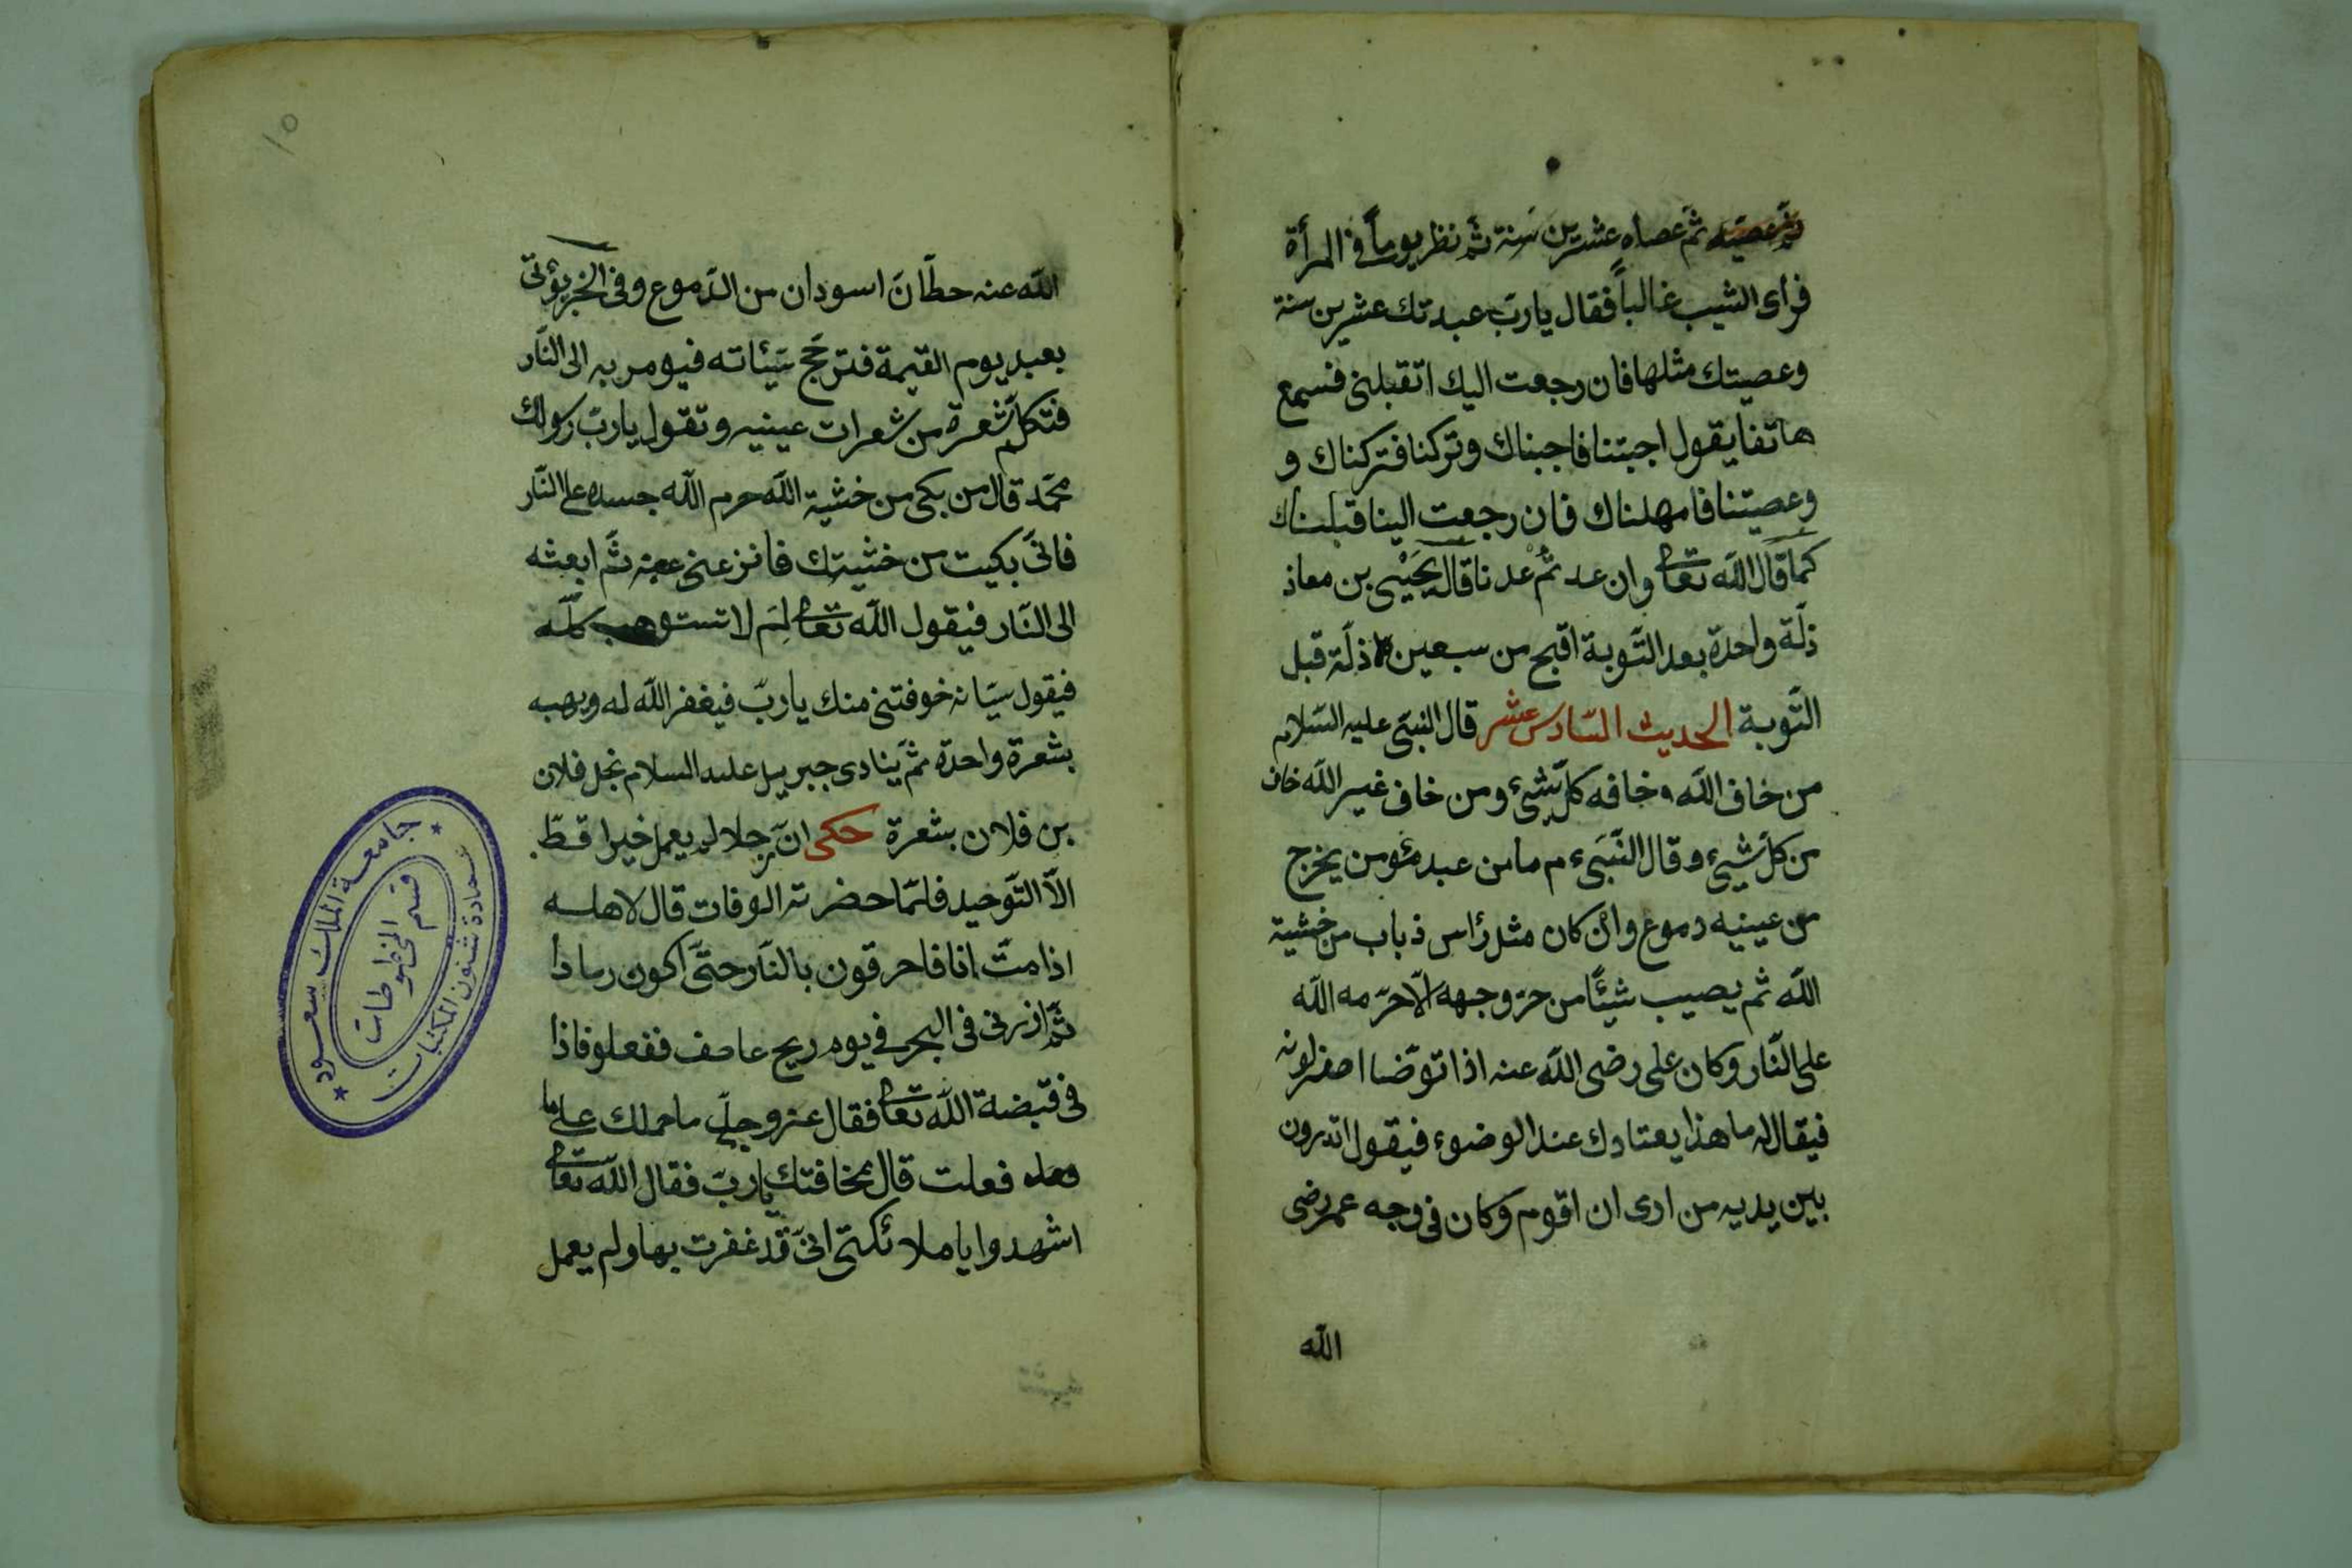 ثم عصاه عشرين سنة ثم نظر يوماً في المرأة
فرأى الشيب غالباً فقال يا ربّ عبدتك عشرين سنة
وعصيتك مثلها فان رجعت اليك اتقبلنى فسمع
هاتفا يقول اجبتنا فاجبناك وتركنا فتركناك و
وعصيتنا فامهلناك فان رجعت الينا قبلناك
كما قال الله تعالى وان عدتم عدنا قال يحيى بن معاذ
ذلّة واحدة بعد التّوبة اقبح من سبعين ذلّة قبل
التّوبة الحديث السّادس عشر قال النبىّ عليه السّلام
من خاف الله خافه كلّ شئ ومن خاف غير الله خاف
من كلّ شئ وقال النّبىّ م ما من عبد مؤمن يخرج
من عينيه دموع وان كان مثل رأس ذباب من خشية
الله ثم يصيب شيئًا من حرّ وجهه الّا حرّمه الله
على النّار وكان على رضى الله عنه اذا توضّا اصفر لونه
فيقال له ما هذا يعتادك عند الوضوء فيقول اتدرون
بين يديه من ارى ان اقوم وكان فى وجه عمر رضى
الله
الله عنه خطّان اسودان من الدّموع وفى الخبر يؤتى
بعبد يوم القيمة فترجّح سيّئاته فيومر به الى النّار
فتكلّم شعرة من شعرات عينيه وتقول يا ربّ رسولك
محمّد قال من بكى من خشية الله حرم الله جسده على النّار
فانّى بكيت من خشيتك فانزعنى عنه ثمّ ابعثه
الى النّار فيقول الله تعالى لِمَ لا تستوهب كلّه
فيقول خوفتنى منك يا ربّ فيغفر الله له ويهبه
بشعرة واحدة ثمّ ينادى جبريل عليه السلام نجى فلان
بن فلان بشعرة حكى انّ رجلا لم يعمل خيرا قطّ
الّا التّوحيد فلمّا حضرته الوفات قال لاهله
اذا متّ انا فاحرقون بالنّار حتّى اكون رمادا
ثمّ اذرنى فى البحر فى يوم ريح عاصف ففعلو فاذا
فى قبضة الله تعالى فقال عزوجلّ ما حملك على ما
فعلت قال مخافتك يا ربّ فقال الله تعالى
اشهدوا يا ملائكتى انّى قد غفرت بها ولم يعمل
١٥
جامعة الملك سعود
عمادة شئون المكتبات
قسم المخطوطات